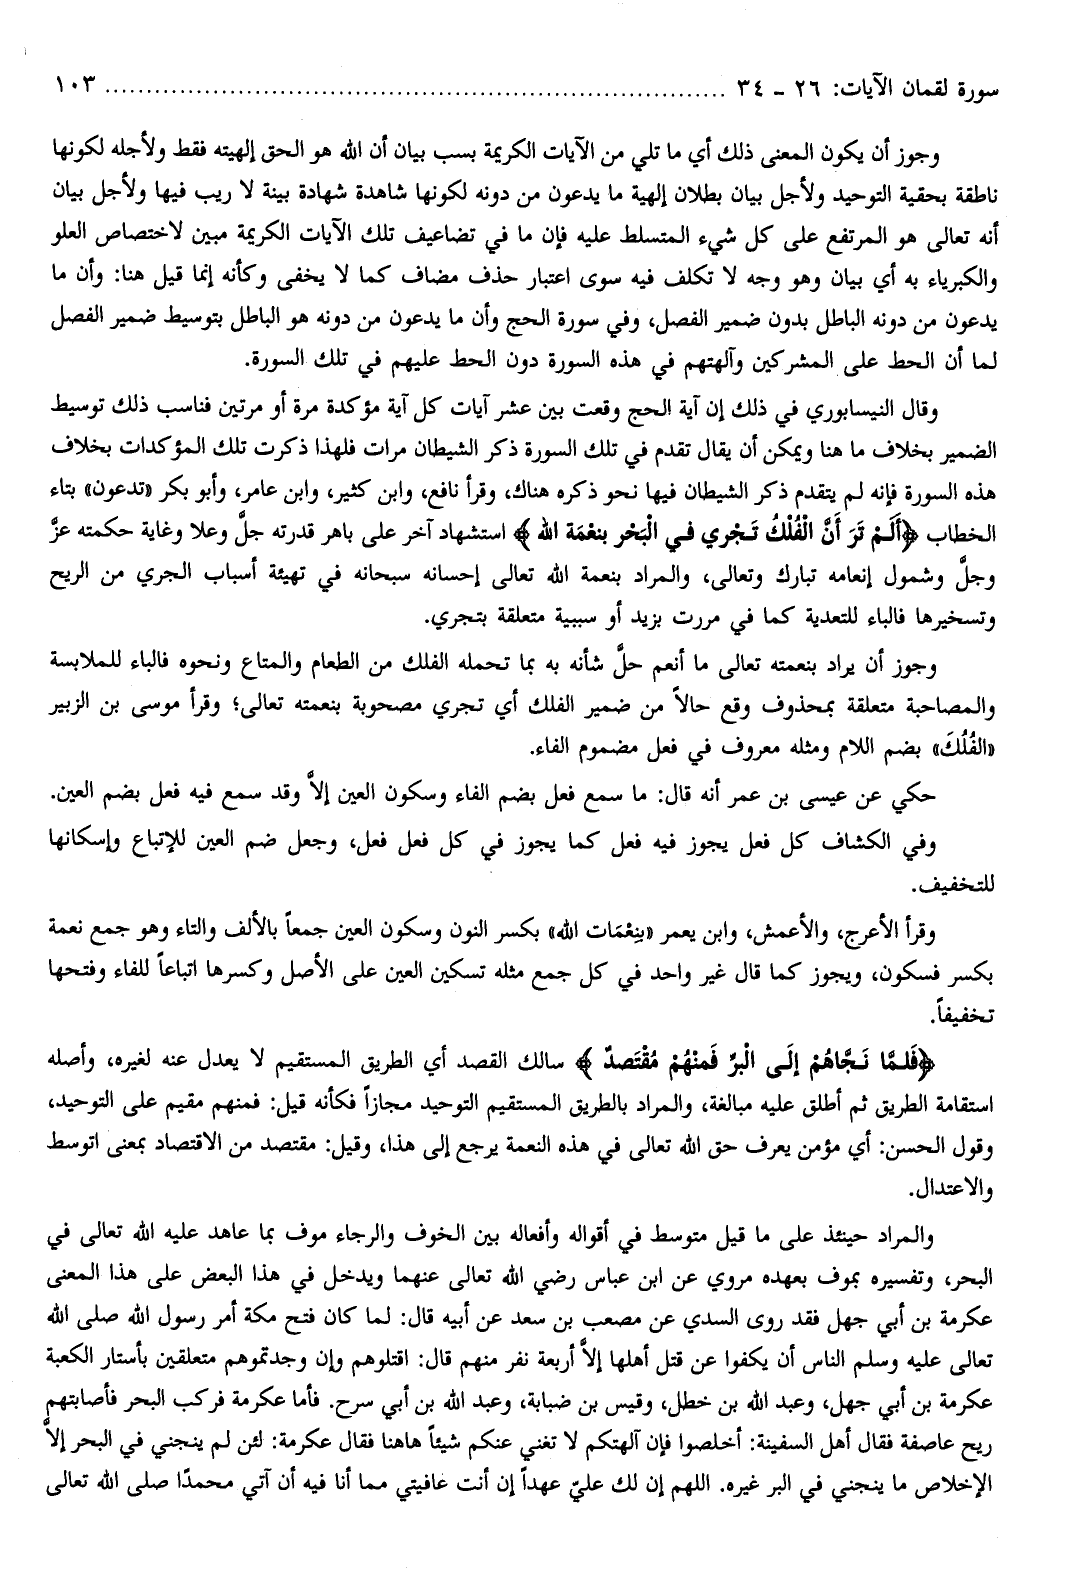 سورة لقمان الآيات: ٢٦ - ٣٤ ........................................................................... ١٠٣
وجوز أن يكون المعنى ذلك أي ما تلي من الآيات الكريمة بسب بيان أن الله هو الحق إلهيته فقط ولأجله لكونها
ناطقة بحقية التوحيد ولأجل بيان بطلان إلهية ما يدعون من دونه لكونها شاهدة شهادة بينة لا ريب فيها ولأجل بيان
أنه تعالى هو المرتفع على كل شيء المتسلط عليه فإن ما في تضاعيف تلك الآيات الكريمة مبين لاختصاص العلو
والكبرياء به أي بيان وهو وجه لا تكلف فيه سوى اعتبار حذف مضاف كما لا يخفى وكأنه إنما قيل هنا: وأن ما
يدعون من دونه الباطل بدون ضمير الفصل، وفي سورة الحج وأن ما يدعون من دونه هو الباطل بتوسيط ضمير الفصل
لما أن الحط على المشركين وآلهتهم في هذه السورة دون الحط عليهم في تلك السورة.
وقال النيسابوري في ذلك إن آية الحج وقعت بين عشر آيات كل آية مؤكدة مرة أو مرتين فناسب ذلك توسيط
الضمير بخلاف ما هنا ويمكن أن يقال تقدم في تلك السورة ذكر الشيطان مرات فلهذا ذكرت تلك المؤكدات بخلاف
هذه السورة فإنه لم يتقدم ذكر الشيطان فيها نحو ذكره هناك، وقرأ نافع، وابن كثير، وابن عامر، وأبو بكر «تدعون» بتاء
الخطاب ﴿أَلَمْ تَرَ أَنَّ الْفُلْكَ تَجْري في الْبَحْر بنعْمَة الله ﴾ استشهاد آخر على باهر قدرته جلَّ وعلا وغاية حكمته عزَّ
وجلَّ وشمول إنعامه تبارك وتعالى، والمراد بنعمة الله تعالى إحسانه سبحانه في تهيئة أسباب الجري من الريح
وتسخيرها فالباء للتعدية كما في مررت بزيد أو سببية متعلقة بتجري.
وجوز أن يراد بنعمته تعالى ما أنعم جلَّ شأنه به بما تحمله الفلك من الطعام والمتاع ونحوه فالباء للملابسة
والمصاحبة متعلقة بمحذوف وقع حالاً من ضمير الفلك أي تجري مصحوبة بنعمته تعالى؛ وقرأ موسى بن الزبير
«الفُلُكَ» بضم اللام ومثله معروف في فعل مضموم الفاء.
حكي عن عيسى بن عمر أنه قال: ما سمع فعل بضم الفاء وسكون العين إلاَّ وقد سمع فيه فعل بضم العين.
وفي الكشاف كل فعل يجوز فيه فعل كما يجوز في كل فعل فعل، وجعل ضم العين للإتباع وإسكانها
للتخفيف.
وقرأ الأعرج، والأعمش، وابن يعمر «بنِعْمَات الله» بكسر النون وسكون العين جمعاً بالألف والتاء وهو جمع نعمة
بكسر فسكون، ويجوز كما قال غير واحد في كل جمع مثله تسكين العين على الأصل وكسرها اتباعاً للفاء وفتحها
تخفيفاً.
﴿فَلمَّا نَجَّاهُمْ إلَى الْبرِّ فَمنْهُمْ مُقْتَصدٌ ﴾ سالك القصد أي الطريق المستقيم لا يعدل عنه لغيره، وأصله
استقامة الطريق ثم أطلق عليه مبالغة، والمراد بالطريق المستقيم التوحيد مجازاً فكأنه قيل: فمنهم مقيم على التوحيد،
وقول الحسن: أي مؤمن يعرف حق الله تعالى في هذه النعمة يرجع إلى هذا، وقيل: مقتصد من الاقتصاد بمعنى اتوسط
والاعتدال.
والمراد حينئذ على ما قيل متوسط في أقواله وأفعاله بين الخوف والرجاء موف بما عاهد عليه الله تعالى في
البحر، وتفسيره بموف بعهده مروي عن ابن عباس رضي الله تعالى عنهما ويدخل في هذا البعض على هذا المعنى
عكرمة بن أبي جهل فقد روى السدي عن مصعب بن سعد عن أبيه قال: لما كان فتح مكة أمر رسول الله صلى الله
تعالى عليه وسلم الناس أن يكفوا عن قتل أهلها إلاَّ أربعة نفر منهم قال: اقتلوهم وإن وجدتموهم متعلقين بأستار الكعبة
عكرمة بن أبي جهل، وعبد الله بن خطل، وقيس بن ضبابة، وعبد الله بن أبي سرح. فأما عكرمة فركب البحر فأصابتهم
ريح عاصفة فقال أهل السفينة: أخلصوا فإن آلهتكم لا تغني عنكم شيئاً هاهنا فقال عكرمة: لئن لم ينجني في البحر إلاَّ
الإخلاص ما ينجني في البر غيره. اللهم إن لك عليّ عهداً إن أنت عافيتي مما أنا فيه أن آتي محمدًا صلى الله تعالى